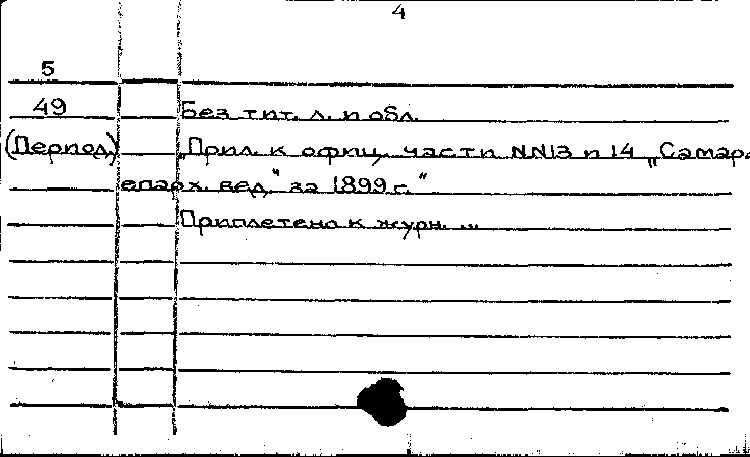 4
5
49 Без тит. л. и обл.
(Период.) „Прил. к офиц. части NN13 и 14 „Самар.
епарх. вед." за 1899 г."
Приплетено к журн. ...